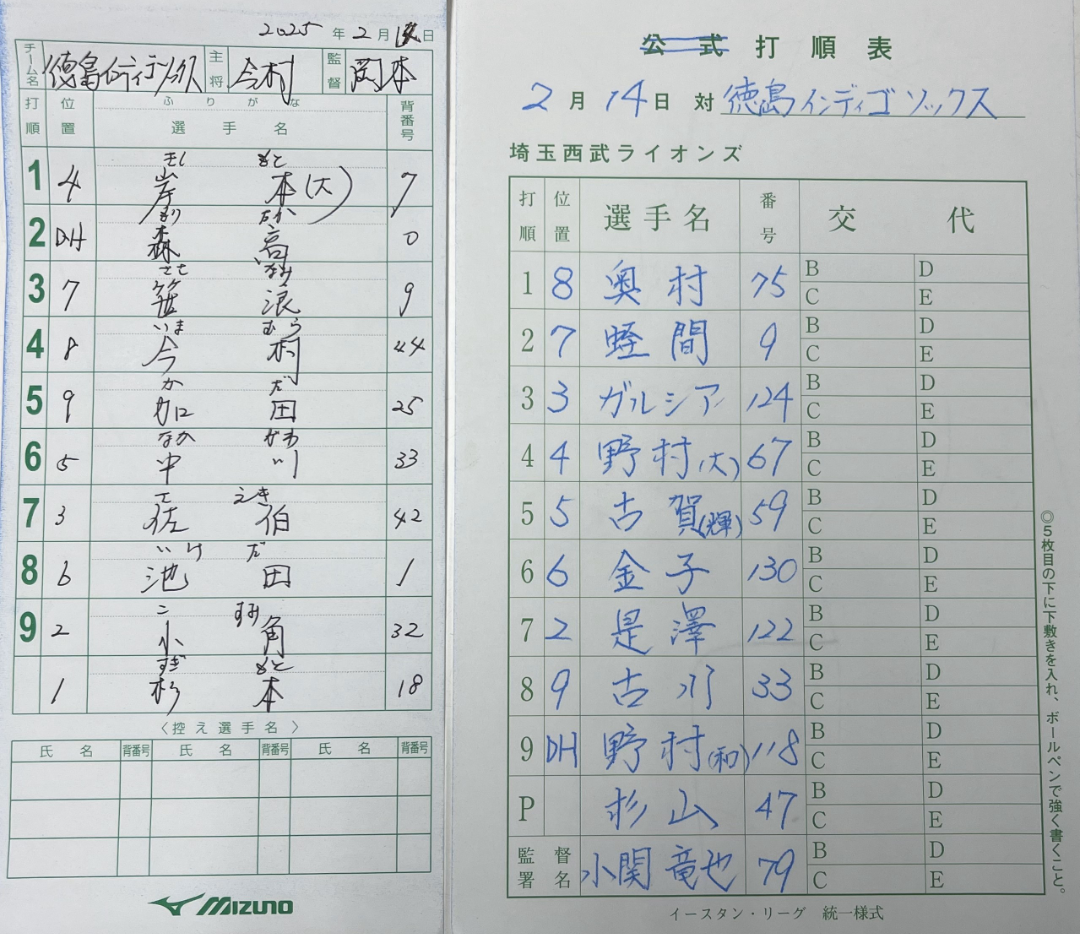 2025 年 2 月 14 日
チーム名 徳島インディゴソックス 主将 今村 監督 岡本
打順 位置 ふりがな 選手名 背番号
きし もと
1 4 岸 本(大) 7
もり たか
2 DH 森 高 0
ささ なみ
3 7 笹 浪 9
いま むら
4 8 今 村 44
か だ
5 9 加 田 25
なか がわ
6 5 中 川 33
さ えき
7 3 佐 伯 42
いけ だ
8 6 池 田 1
こ すみ
9 2 小 角 32
すぎ もと
1 杉 本 18
〈控え選手名〉
氏名 背番号 氏名 背番号 氏名 背番号
MIZUNO
公式打順表
2月14日 対 徳島インディゴソックス
埼玉西武ライオンズ
打順 位置 選手名 番号 交代
1 8 奥村 75 B D
C E
2 7 蛭間 9 B D
C E
3 3 ガルシア 124 B D
C E
4 4 野村(大) 67 B D
C E
5 5 古賀(輝) 59 B D
C E
6 6 金子 130 B D
C E
7 2 是澤 122 B D
C E
8 9 古川 33 B D
C E
9 DH 野村(和) 118 B D
C E
P 杉山 47 B D
C E
監督署名 小関竜也 79 B D
C E
イースタン・リーグ 統一様式
◎5枚目の下に下敷きを入れ、ボールペンで強く書くこと。